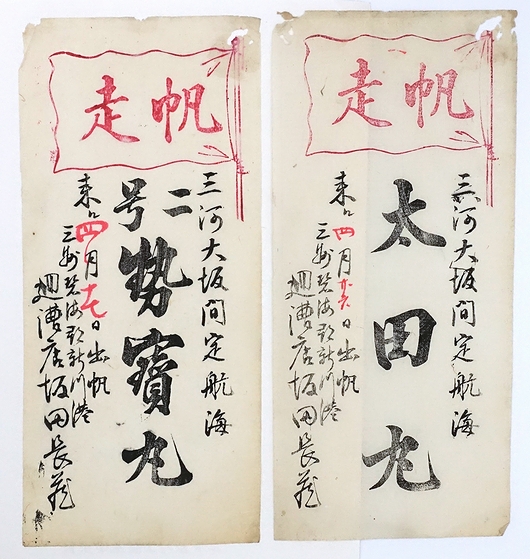 帆走
三河大坂間定航海
太田丸
来ル四月廿六日出帆
三州碧海郡新川港
廻漕店坂田長蔵
帆走
三河大坂間定航海
二号勢寳丸
来ル四月十七日出帆
三州碧海郡新川港
廻漕店坂田長蔵